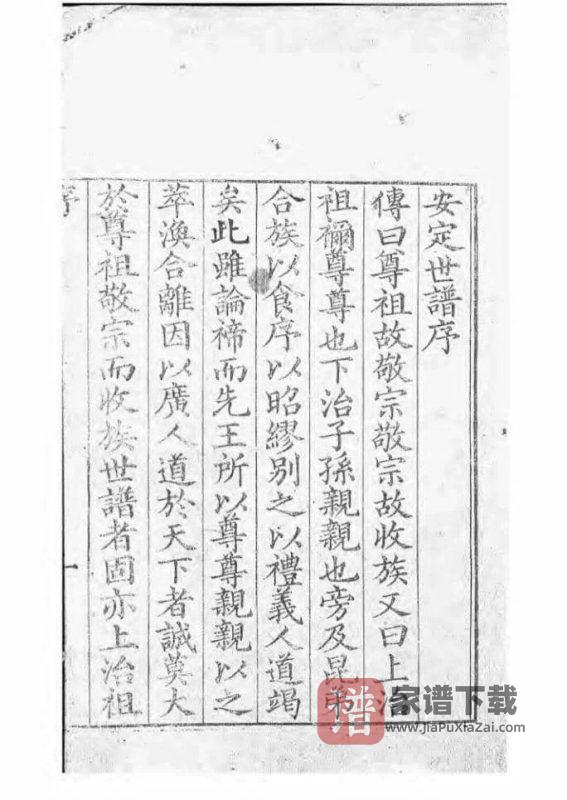 安定世譜序
傳曰尊祖故敬宗敬宗故收族又曰上治
祖禰尊尊也下治子孫親親也旁及昆弟
合族以食序以昭繆別之以禮義人道竭
矣此雖論禘而先王所以尊尊親親以之
萃渙合離因以廣人道於天下者誠莫大
於尊祖敬宗而收族世譜者固亦上治祖
序
一
譜
家谱下载
www.JiaPuXiaZai.com